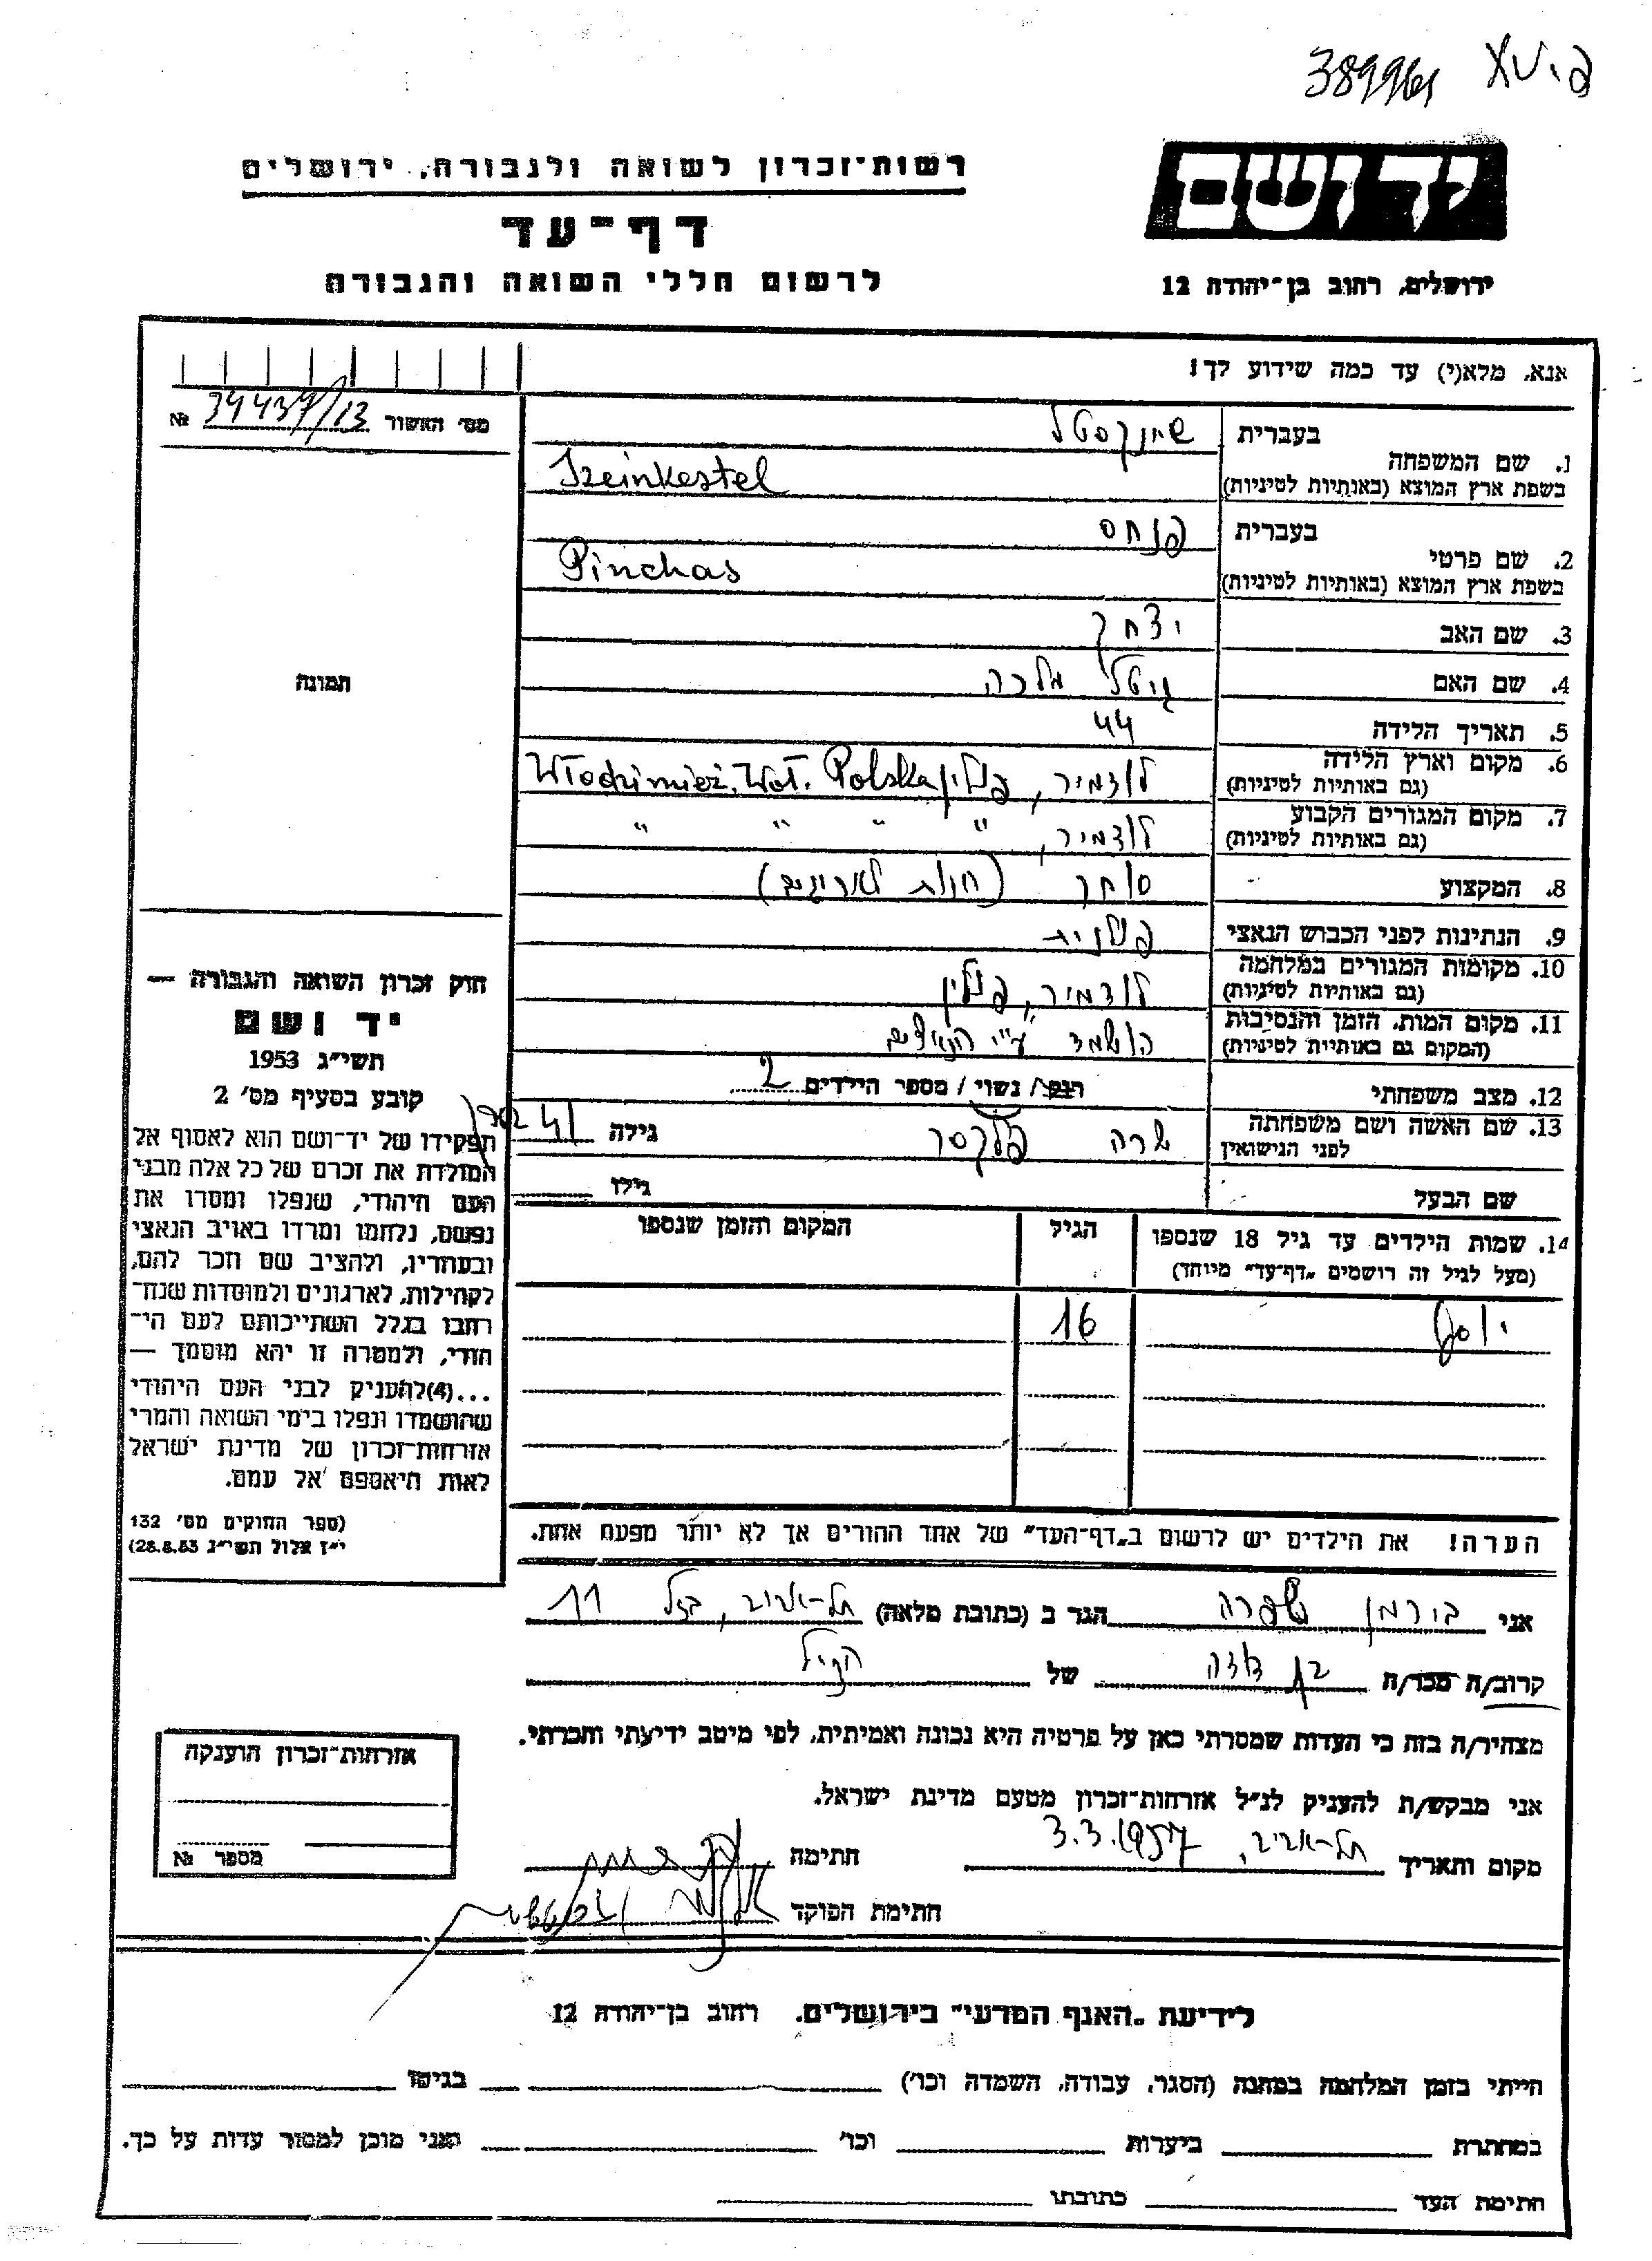 389961
יד ושם
רשות־זכרון לשואה ולגבורה, ירושלים
דף־עד
לרשום חללי השואה והגבורה
ירושלים, רחוב בן־יהודה 12
אנא, מלא(י) עד כמה שידוע לך!
מס׳ האשור 39437/13 №
תמונה
1. שם המשפחה
בעברית שיינקסטל
בשפת ארץ המוצא (באותיות לטיניות) Szeinkestel
2. שם פרטי
בעברית פנחס
בשפת ארץ המוצא (באותיות לטיניות) Pinchas
3. שם האב יצחק
4. שם האם גיטל מלכה
5. תאריך הלידה 44
6. מקום וארץ הלידה לודמיר, פולין Włodzimierz. Woł. Polska
(גם באותיות לטיניות)
7. מקום המגורים הקבוע לודמיר, " " " "
(גם באותיות לטיניות)
8. המקצוע סוחר (חנות לאריגים)
9. הנתינות לפני הכבוש הנאצי פולנית
10. מקומות המגורים במלחמה לודמיר, פולין
(גם באותיות לטיניות)
11. מקום המות, הזמן והנסיבות הושמד ע"י הנאצים
(המקום גם באותיות לטיניות)
12. מצב משפחתי רווק / נשוי / מספר הילדים 2
13. שם האשה ושם משפחתה שרה גילה 41
לפני הנישואין
שם הבעל גילו
14. שמות הילדים עד גיל 18 שנספו הגיל המקום והזמן שנספו
(מעל לגיל זה רושמים „דף־עד" מיוחד)
יוסף 16
חוק זכרון השואה והגבורה —
יד ושם
תשי״ג 1953
קובע בסעיף מס׳ 2
תפקידו של יד־ושם הוא לאסוף אל
המולדת את זכרם של כל אלה מבני
העם היהודי, שנפלו ומסרו את
נפשם, נלחמו ומרדו באויב הנאצי
ובעוזריו, ולהציב שם וזכר להם,
לקהילות, לארגונים ולמוסדות שנח־
רבו בגלל השתייכותם לעם הי־
הודי, ולמטרה זו יהא מוסמך —
...(4)להעניק לבני העם היהודי
שהושמדו ונפלו בימי השואה והמרי
אזרחות־זכרון של מדינת ישראל
לאות היאספם אל עמם.
(ספר החוקים מס׳ 132
י״ז אלול תשי״ג 28.8.53)
הערה! את הילדים יש לרשום ב„דף־העד" של אחד ההורים אך לא יותר מפעם אחת.
אני בורמן שפרה הגר ב (כתובת מלאה) תל-אביב, בזל 11
קרוב/ה מכר/ה בת דודה של הנ"ל
מצהיר/ה בזה כי העדות שמסרתי כאן על פרטיה היא נכונה ואמיתית, לפי מיטב ידיעתי והכרתי.
אני מבקש/ת להעניק לנ״ל אזרחות־זכרון מטעם מדינת ישראל.
מקום ותאריך תל-אביב, 3.3.1957 חתימה
חתימת הפוקד
אזרחות־זכרון הוענקה
מספר №
לידיעת „האגף המדעי" בירושלים. רחוב בן־יהודה 12
הייתי בזמן המלחמה במחנה (הסגר, עבודה, השמדה וכו׳) בגיטו
במחתרת ביערות וכו׳ ואני מוכן למסור עדות על כך.
חתימת העד כתובתו